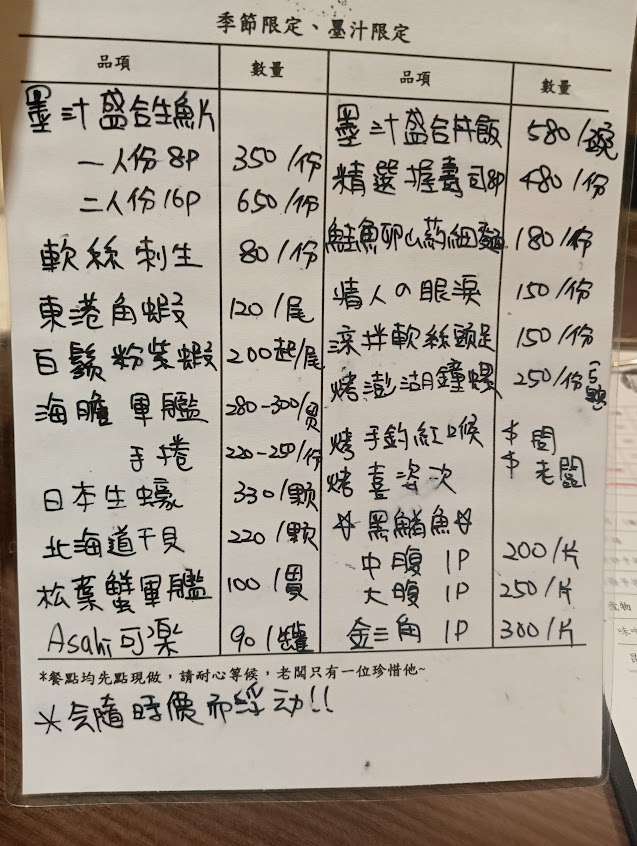 季節限定、墨汁限定
品項 數量 品項 數量
墨汁盛合生魚片
一人份 8P 350/份
二人份 16P 650/份
軟絲刺生 80/份
東港角蝦 120/尾
白鬚粉紫蝦 200起/尾
海膽 軍艦 280-300/貫
手捲 220-250/份
日本生蠔 330/顆
北海道干貝 220/顆
松葉蟹軍艦 100/貫
Asahi可樂 90/罐
墨汁盛合丼飯 580/碗
精選握壽司8P 480/份
鮭魚卵山葯細麵 180/份
情人の眼淚 150/份
涼拌軟絲頭足 150/份
烤澎湖鐘螺 250/份
烤手釣紅喉 $問
烤喜姿次 $老闆
☆黑鮪魚☆
中腹 1P 200/片
大腹 1P 250/片
金三角 1P 300/片
*餐點均先點現做，請耐心等候，老闆只有一位珍惜他~
*会隨時價而經动!!
味